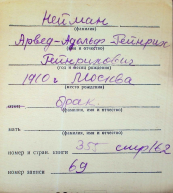 Нейман
(фамилия)
Арвед-Адольф-Гейнрих
(имя и отчество)
Гейнрихович
(год и место рождения)
1910 г. Москва
(место рождения)
брак.
(фамилия, имя и отчество)
мать
(фамилия, имя и отчество)
номер и стран. книги 355 стр 162
номер записи 69